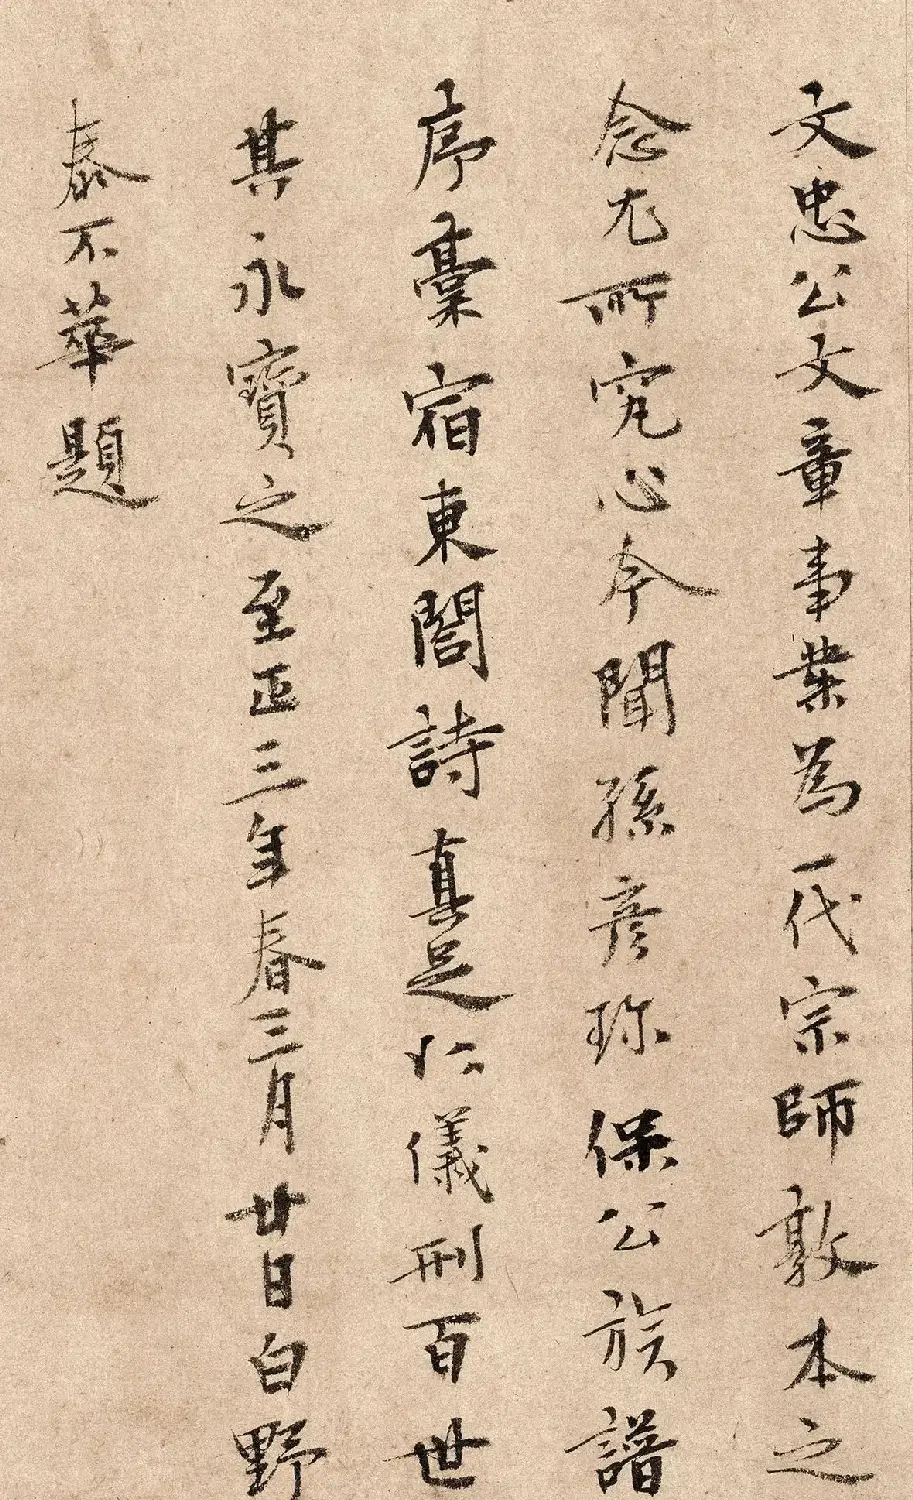 文忠公文章事業為一代宗師敦本之
念尤所究心今聞孫彦珎保公族譜
序稾宿東閤詩真足以儀刑百世
其永寶之至正三年春三月廿日白野
泰不華題